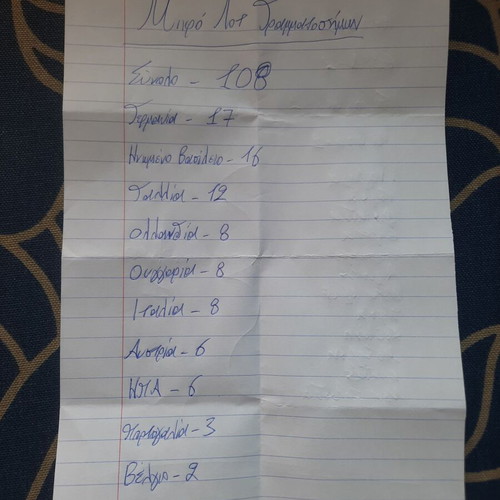 Μικρό Λοτ Γραμματοσήμων
Σύνολο - 108
Γερμανία - 17
Ηνωμένο Βασίλειο - 16
Γαλλία - 12
Ολλανδία - 8
Ουγγαρία - 8
Ιταλία - 8
Αυστρία - 6
ΗΠΑ - 6
Πορτογαλία - 3
Βέλγιο - 2